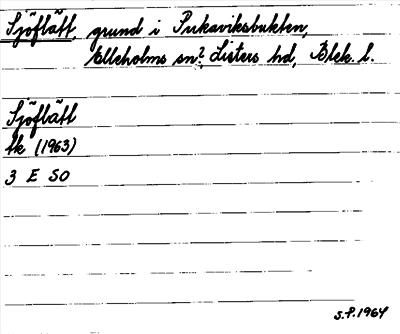 Sjöflätt, grund i Pukaviksbukten,
Elleholms sn? Listers hd, Blek. l.
Sjöflätt
tk (1963)
3 E SO
S.P. 1964